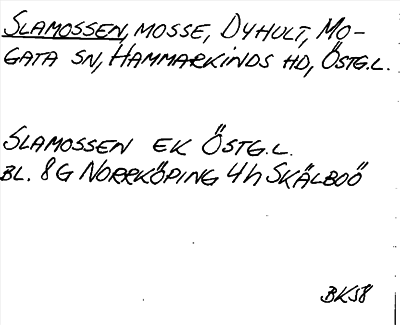 SLAMOSSEN, MOSSE, DYHULT, MO-
GATA SN, HAMMARKINDS HD, ÖSTG.L.
SLAMOSSEN EK ÖSTG.L.
BL. 8G NORRKÖPING 4h SKÄLBOÖ
BK58